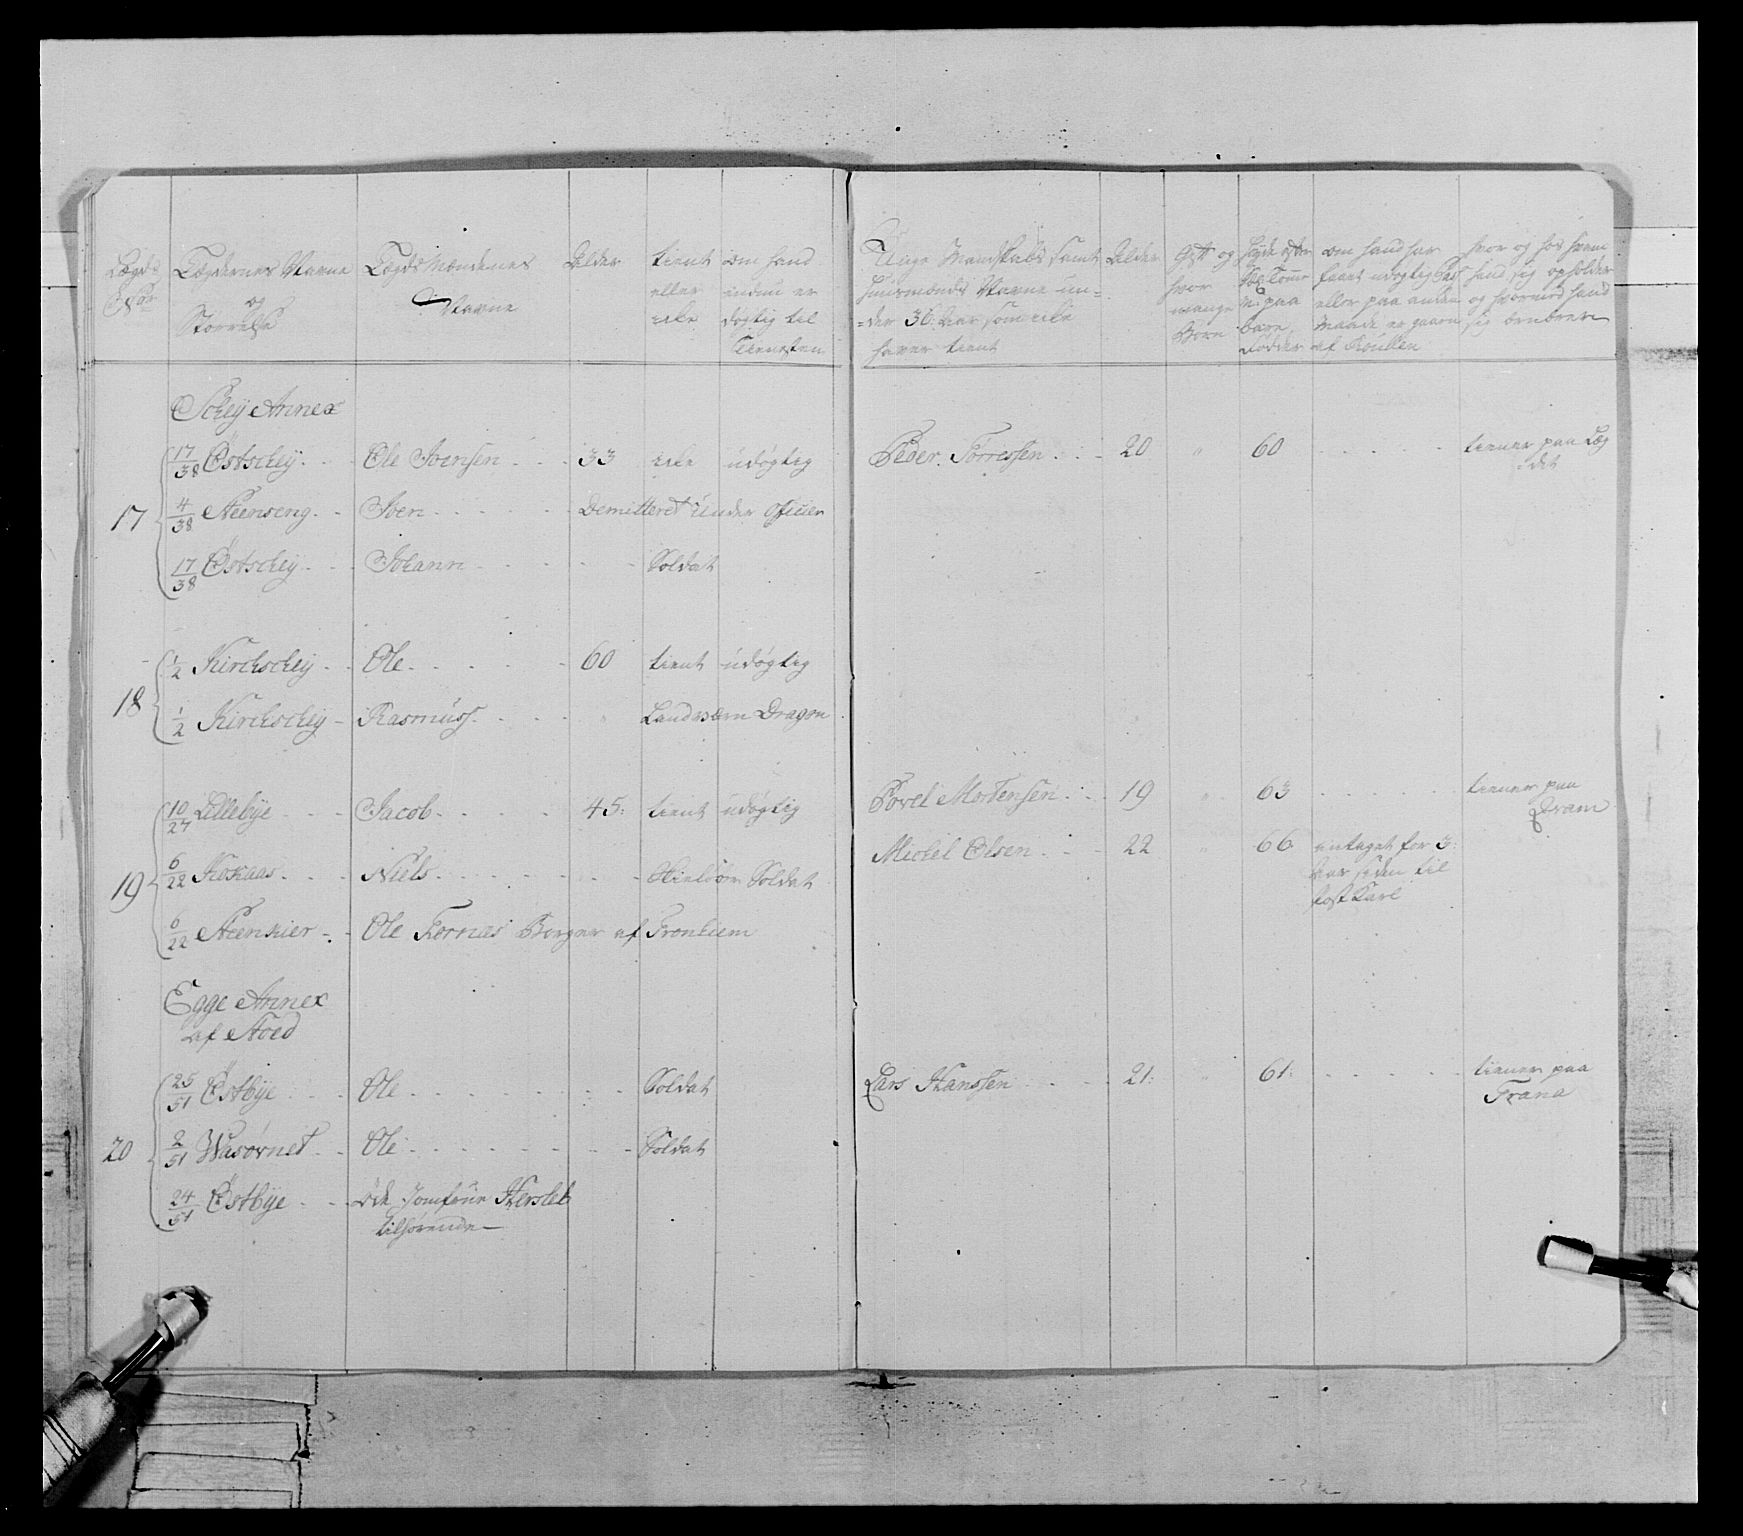 Lægds
No
Lægdernes Navne
og
Størrelse
Lægds Mændenes
Navne
Alder
tient
eller
icke
om hand
endnu er
døgtig til
Tienesten
Unge Mandskabs samt
Huusmænds Navne un-
-der 36 Aar som icke
haver tient
Alder
Gift og
hvor
mange
Børn
Høyde efter
Tomme
paa
bare
Fødder
om hand har
faaet udøgtig Pass
eller paa anden
Maade er gaaen
af Roullen
hvor og hos hvem
hand sig opholder
og hvormed hand
sig ernærer
Schey Annex
17
17/38 Østschey. . . Ole Svensen . . . 33 icke udøgtig
Peder Törressen . . . 20 " 60 . . . . . tiener paa Læg
-det
4/38 Steenseng. . Sven . . . . . Demitteret Under Officier
17/38 Østschey . . . Johann . . . . . Soldat
18
1/2 Kirchschey . . Ole . . . . . 60 tient udøgtig
1/2 Kirchschey - Rasmuss. . . . . " Landværn Dragon
19
10/27 Lillebye . . . Jacob . . . . 45: tient udøgtig
Povel Mortensen . . 19 " 63 . . . . . tiener paa
Qvam
6/22 Koxaas . . . Niels . . . . . . Skieløber Soldat
Michel Olsen . . . 22 " 66 antaget for 3:
Aar siden til
Post Karl
6/22 Steenkier - . Ole Fornæs Borger af Tronhiem
Egge Annex
af Stoed
20
25/51 Østbye . . . Ole . . . . . . Soldat
Lars Hanssen . . . . 21: " 61: . . . . . tiener paa
Frana
2/51 Wasørnet . . Ole . . . . . . Soldat
24/51 Østbye . . . Øde Jomfrue Hersleb
tilhørende —